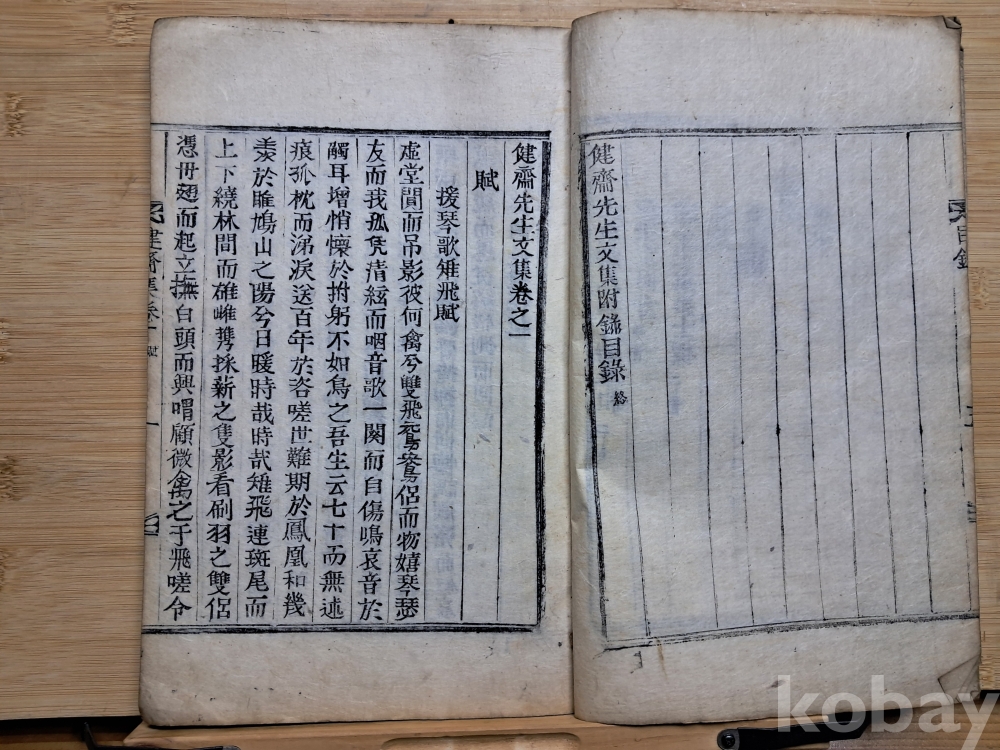 目錄
健齋先生文集附錄目錄 終
健齋先生文集卷之一
賦
援琴歌雉飛賦
虛堂閴而吊影彼何禽兮雙飛鴛鴦侶而物嬉琴瑟
友而我孤凭清絃而咽音歌一闋而自傷鳴哀音於
觸耳增悄懷於拊躬不如鳥之吾生云七十而無逑
痕孤枕而涕淚送百年於咨嗟世難期於鳳凰和幾
羨於雎鳩山之陽兮日暖時哉時哉雉飛連斑尾而
上下繞林間而雄雌携採薪之隻影看刷羽之雙侶
而起立撫白頭而興喟顧微禽之于飛嗟令
健齋集卷一 賦 一
kobay